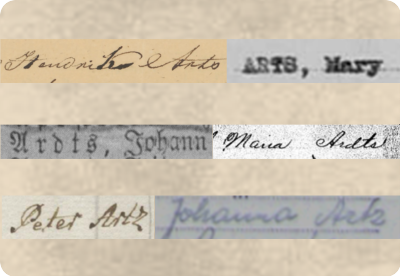 Hendrik Arts
ARTS, Mary
Ardts, Johann
Maria Ardts
Peter Artz
Johanna Artz